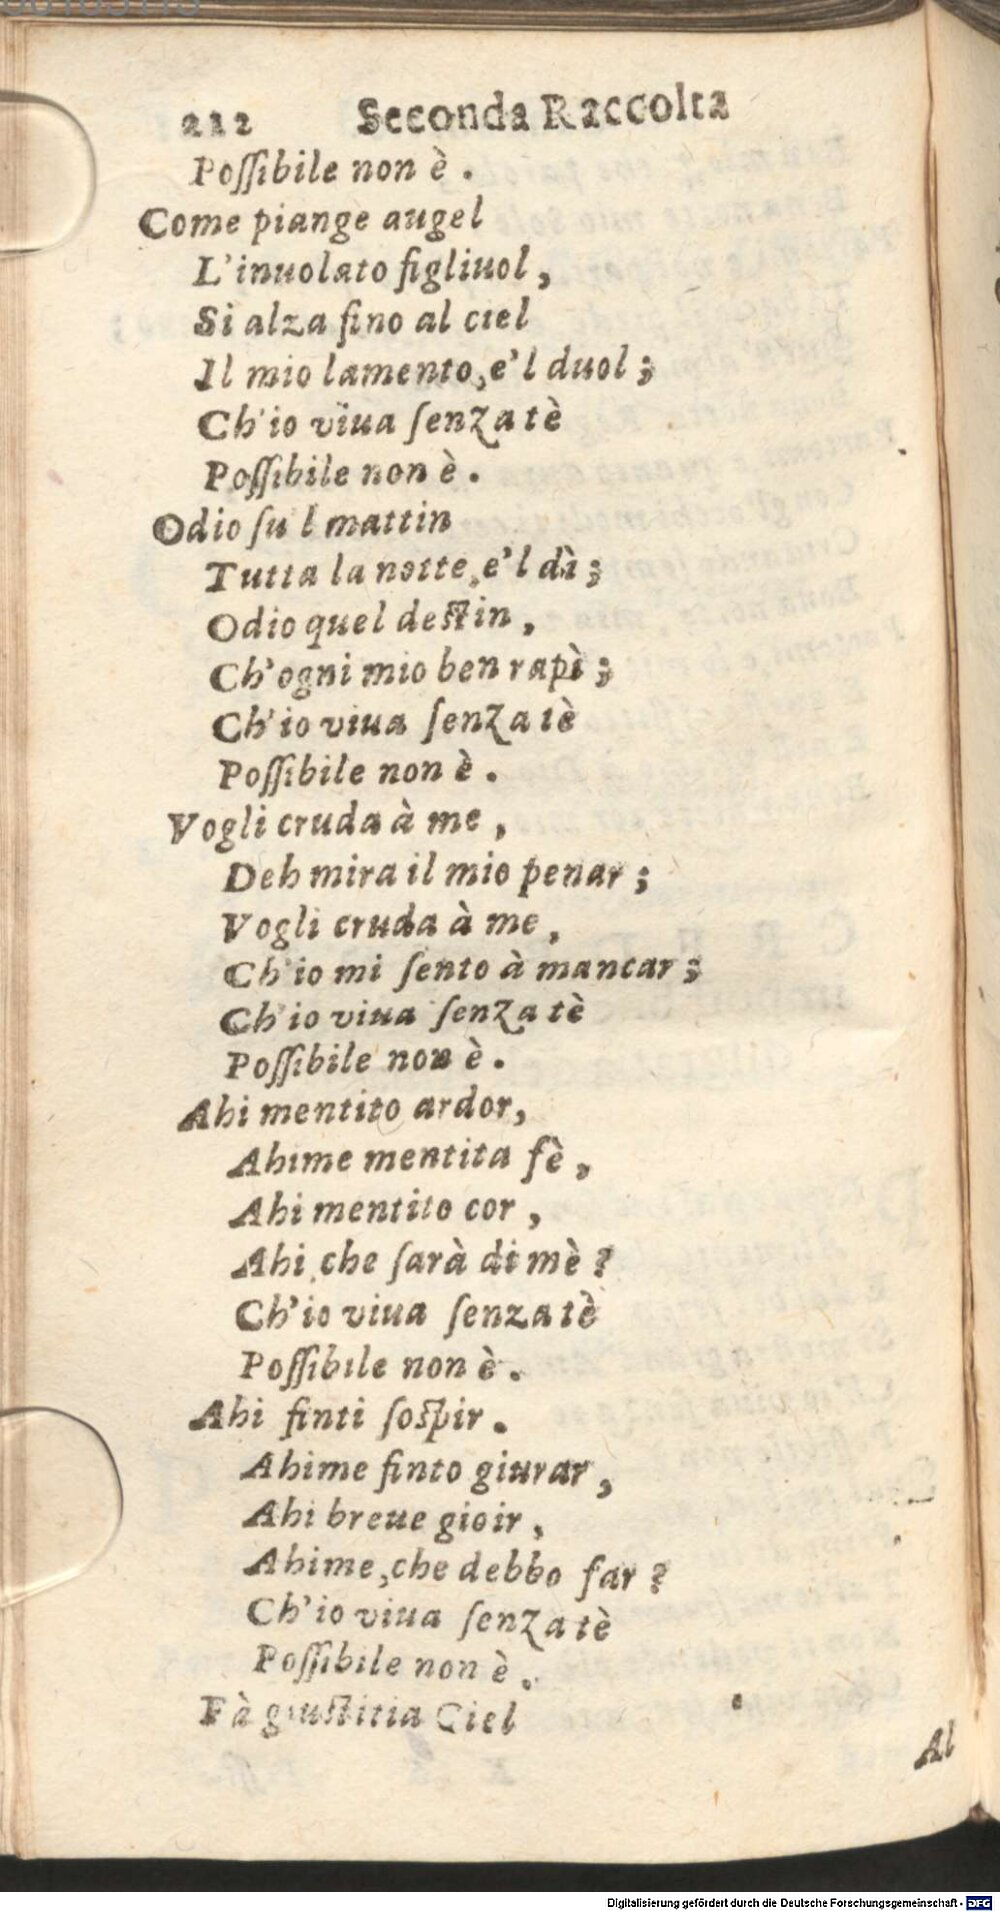 212 Seconda Raccolta
Poſſibile non è .
Come piange augel
L'inuolato figliuol ,
Si alza fino al ciel
Il mio lamento, e'l duol ;
Ch'io viua ſenza tè
Poſſibile non è .
Odio ſu l mattin
Tutta la notte, e'l dì ;
Odio quel deſtin ,
Ch'ogni mio ben rapì ;
Ch'io viua ſenza tè
Poſſibile non è .
Vogli cruda à me ,
Deh mira il mio penar ;
Vogli cruda à me ,
Ch'io mi ſento à mancar ;
Ch'io viua ſenza tè
Poſſibile non è .
Ahi mentito ardor,
Ahime mentita fè ,
Ahi mentito cor ,
Ahi che ſarà di mè ?
Ch'io viua ſenza tè
Poſſibile non è .
Ahi finti ſoſpir .
Ahime finto giurar ,
Ahi breue gioir ,
Ahime, che debbo far ?
Ch'io viua ſenza tè
Poſſibile non è .
Fà giuſtitia Ciel
Al
Digitalisierung gefördert durch die Deutsche Forschungsgemeinschaft - DFG